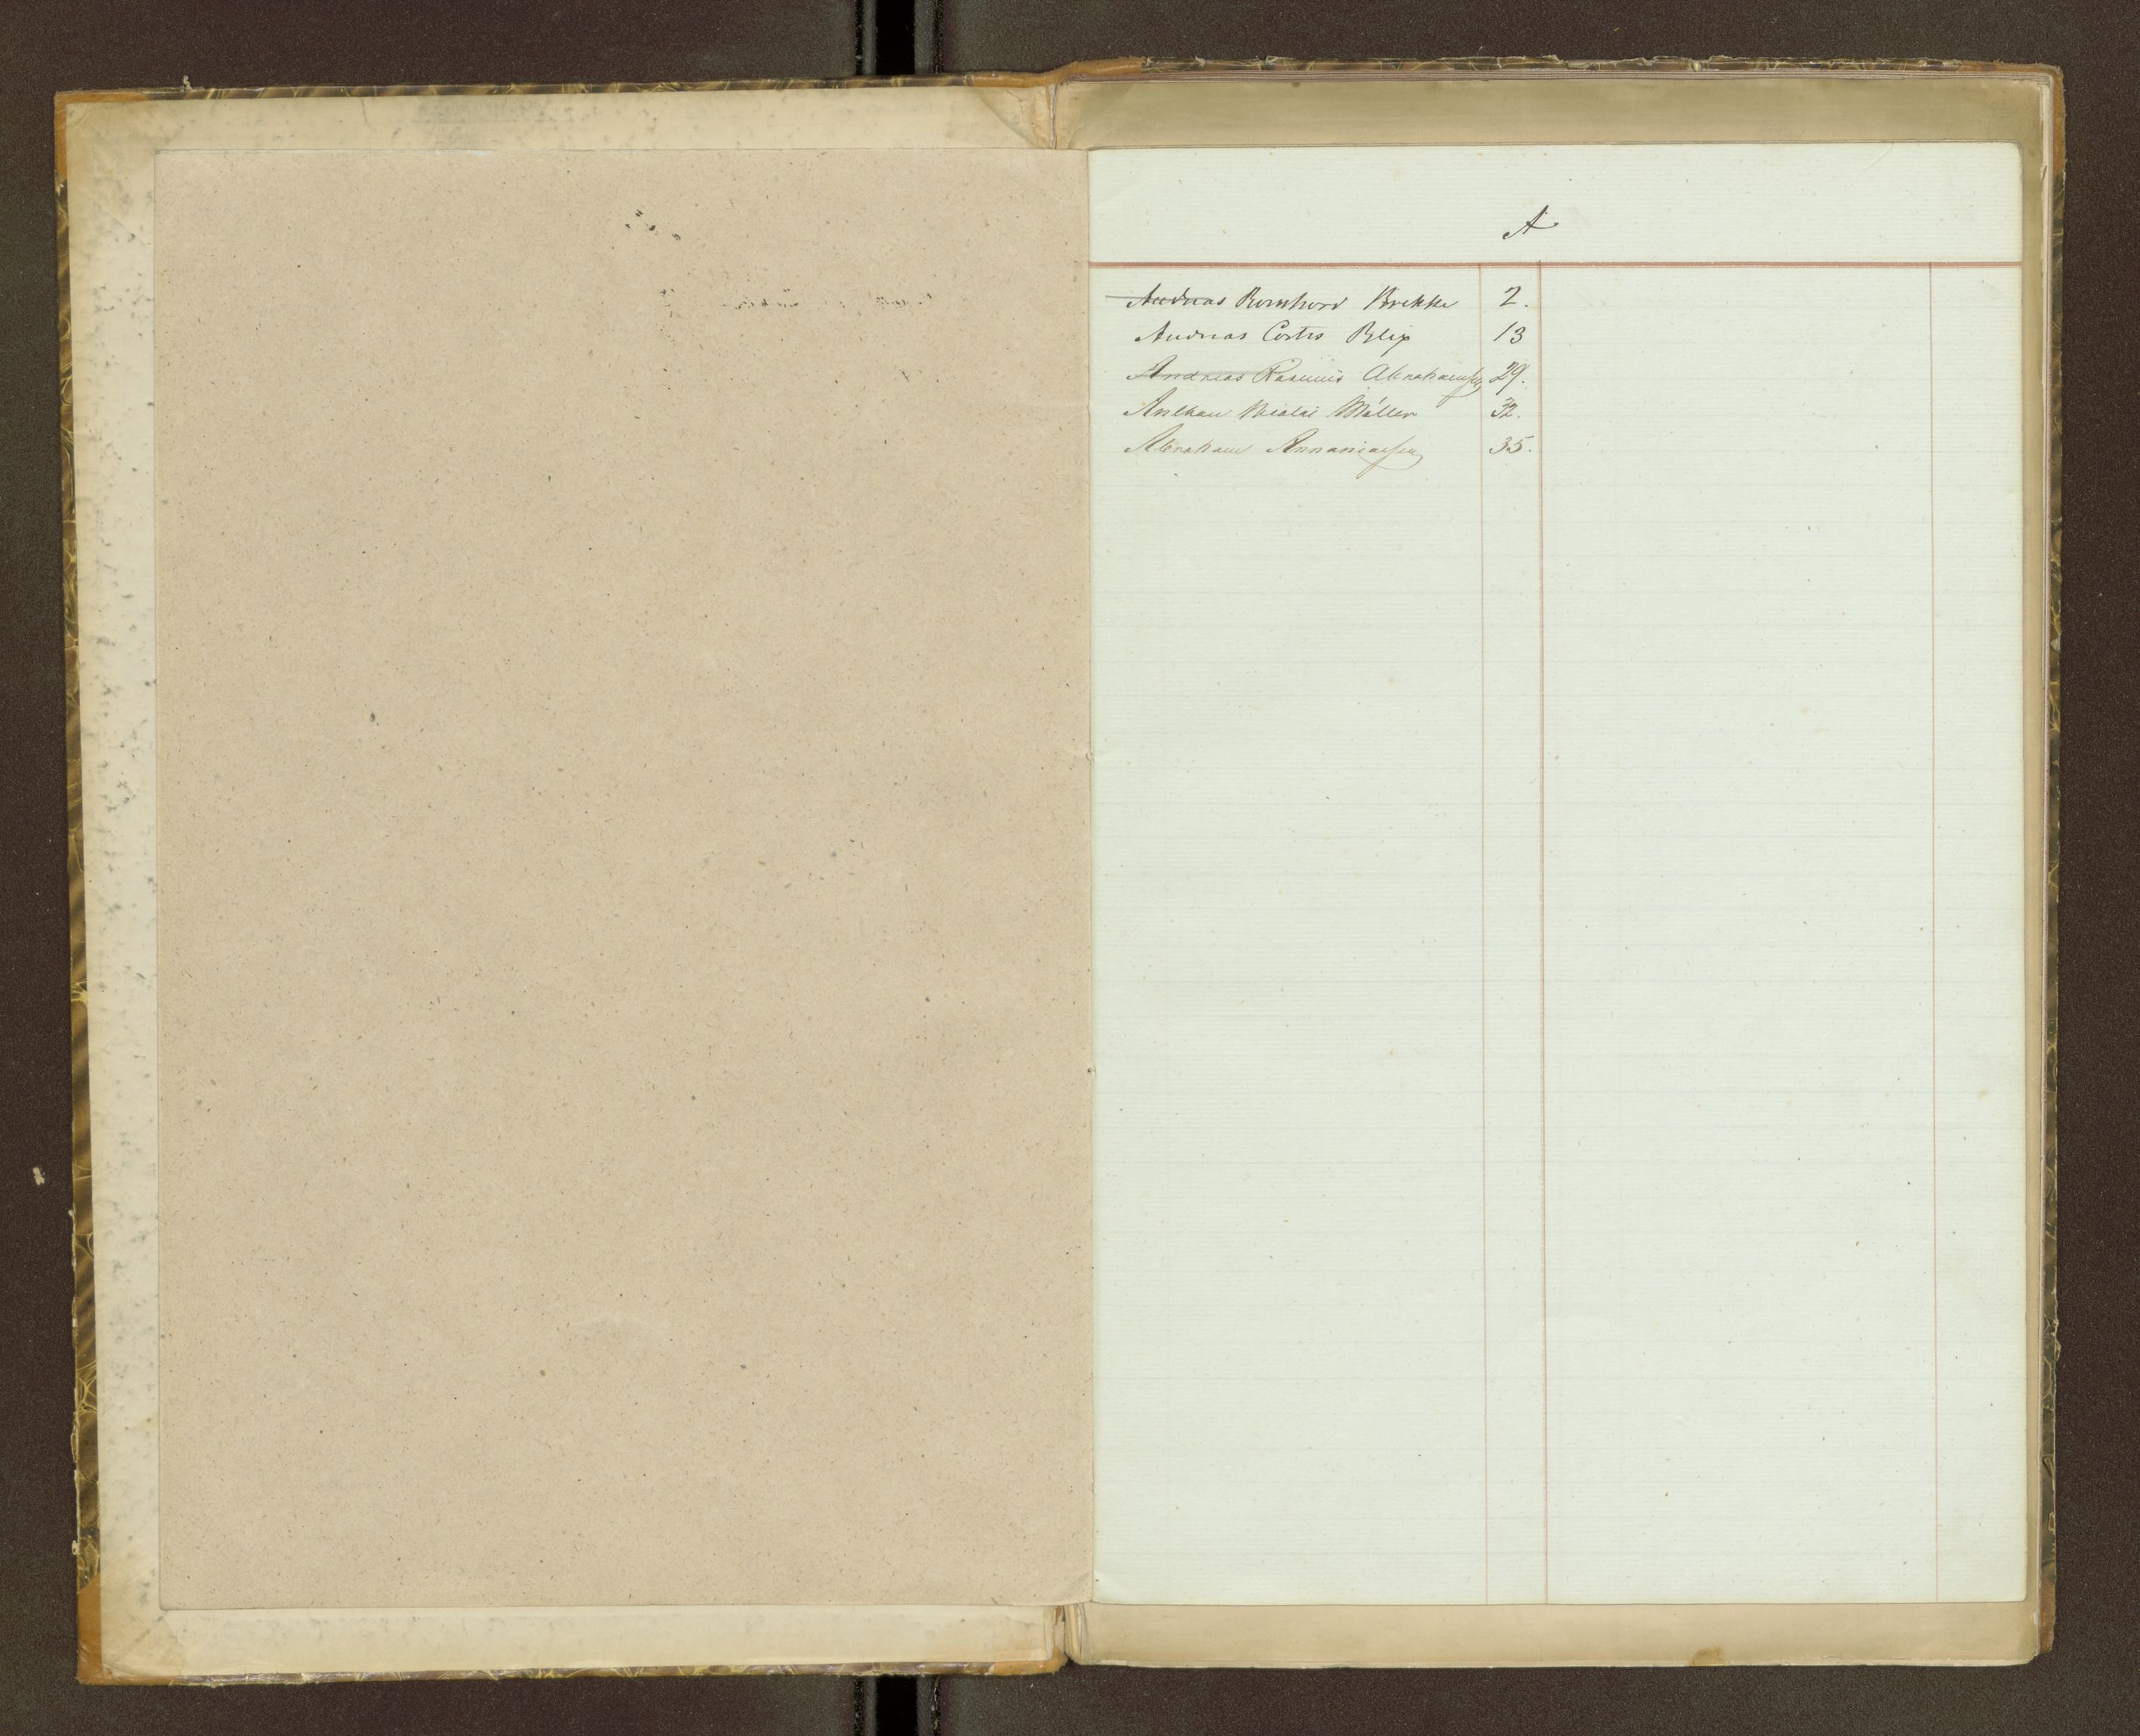 A
Andreas Bernhard Brekke 2.
Andreas Cortes Blix 13
Andreas Rasmus Abrahamsen 29.
Nicolai Møller 32.
Abraham Annaniassen 35.